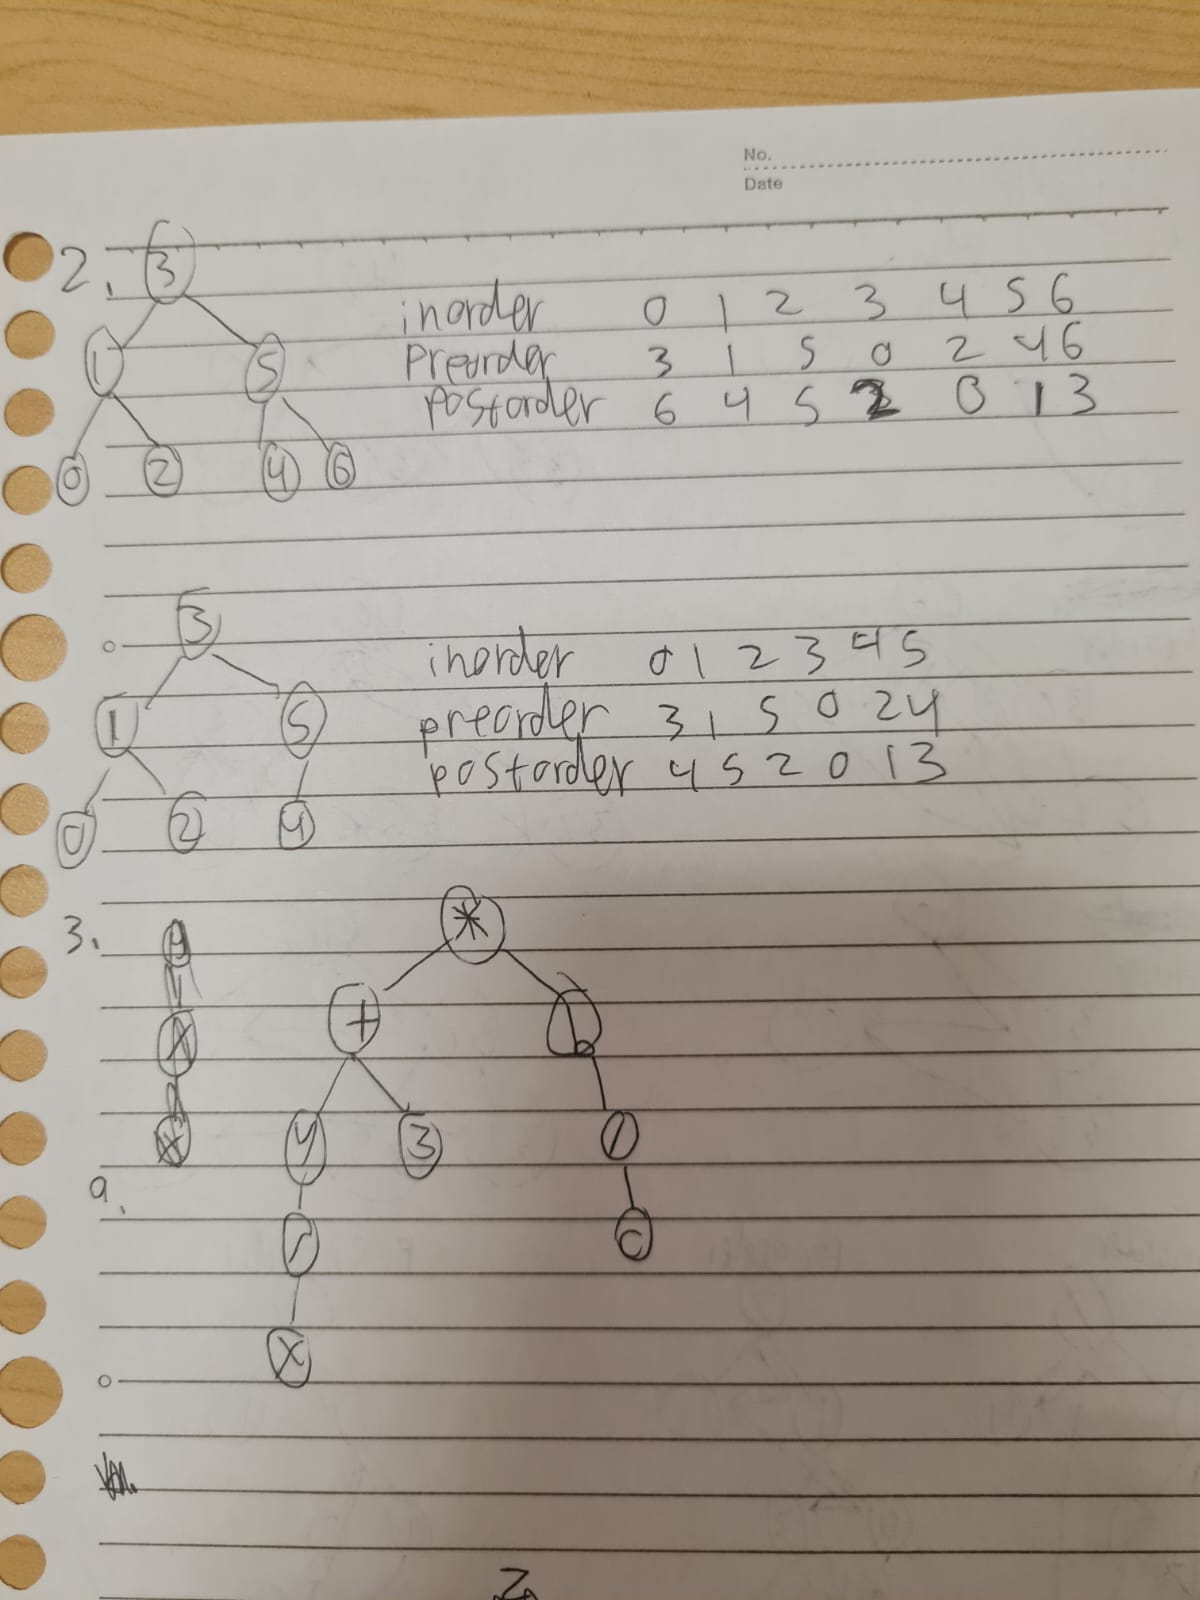 No.
Date
2. 3
inorder 0 1 2 3 4 5 6
1 5
Preorder 3 1 5 0 2 4 6
postorder 6 4 5 2 0 1 3
0 2 4 6
3
inorder 0 1 2 3 4 5
1 5
preorder 3 1 5 0 2 4
postorder 4 5 2 0 1 3
0 2 4
3. *
+ b
y 3 /
9.
c
x